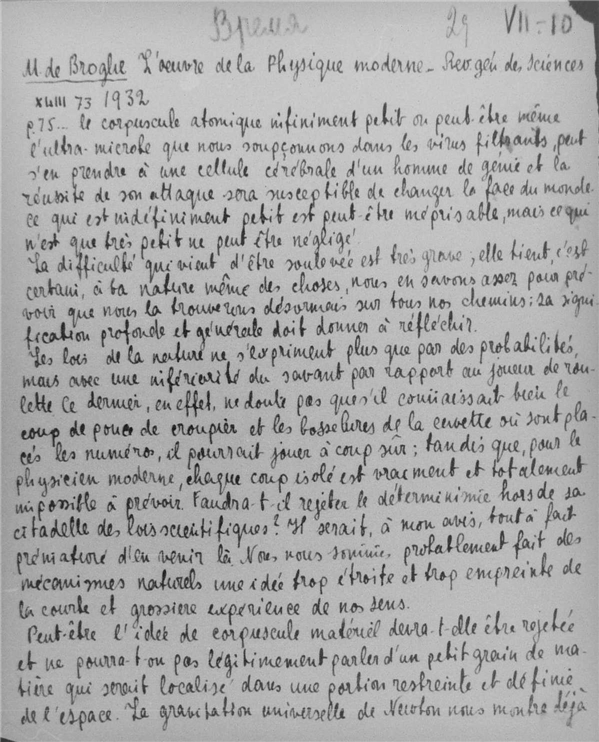 Время 29 VII-10
M. de Broglie L'oeuvre de la Physique moderne - Rev. gén. des Sciences
XLIII 73 1932
p. 75... le corpuscule atomique infiniment petit ou peut-être même
l'ultra-microbe que nous soupçonnons dans les virus filtrants, peut
s'en prendre à une cellule cérébrale d'un homme de génie et la
réussite de son attaque sera susceptible de changer la face du monde.
ce qui est indéfiniment petit est peut-être méprisable, mais ce qui
n'est que très petit ne peut être négligé
La difficulté qui vient d'être soulevée est très grave; elle tient, c'est
certain, à la nature même des choses, nous en savons assez pour pré-
voir que nous la trouverons désormais sur tous nos chemins: sa signi-
fication profonde et générale doit donner à réfléchir.
Les lois de la nature ne s'expriment plus que par des probabilités,
mais avec une infériorité du savant par rapport au joueur de rou-
lette Ce dernier, en effet, ne doute pas que s'il connaissait bien le
coup de pouce de croupier et les bosselures de la cuvette où sont pla-
cés les numéros, il pourrait jouer à coup sûr; tandis que, pour le
physicien moderne, chaque coup isolé est vraiment et totalement
impossible à prévoir. Faudra-t-il rejeter le déterminisme hors de sa
citadelle des lois scientifiques? Il serait, à mon avis, tout à fait
prématuré d'en venir là. Nous nous sommes probablement fait des
mécanismes naturels une idée trop étroite et trop empreinte de
la courte et grossière expérience de nos sens.
Peut-être l'idée de corpuscule matériel devra-t-elle être rejetée
et ne pourra-t-on pas légitimement parler d'un petit grain de ma-
tière qui serait localisé dans une portion restreinte et définie
de l'espace. La gravitation universelle de Newton nous montre déjà